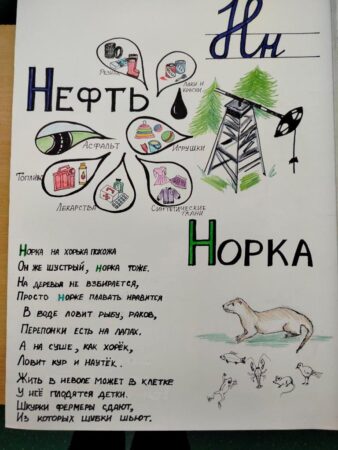 Нн
Нефть
Резина
Лаки и краски
Асфальт
Игрушки
Топливо
Лекарства
Синтетические ткани
Норка
Норка на хорька похожа
Он же шустрый, норка тоже.
На деревья не взбирается,
Просто норке плавать нравится
В воде ловит рыбу, раков,
Перепонки есть на лапах.
А на суше, как хорёк,
Ловит кур и наутёк.
Жить в неволе может в клетке
У неё плодятся детки.
Шкурки фермеры сдают,
Из которых шубки шьют.